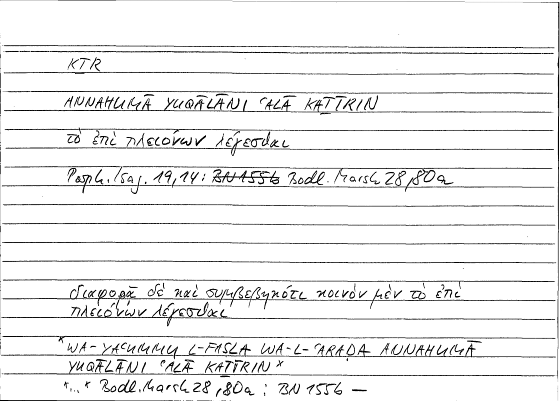 KṮR
ANNAHUMĀ YUQĀLĀNI ʿALĀ KAṮĪRĪN
τὸ ἐπὶ πλειόνων λέγεσθαι
Porph. Isag. 19,14: BN 1556 Bodl. Marsh 28,80a
διαφορᾷ δὲ καὶ συμβεβηκότι κοινὸν μὲν τὸ ἐπὶ
πλειόνων λέγεσθαι
*WA-YAʿUMMU L-FAṢLA WA-L-ʿARAḌA ANNAHUMĀ
YUQĀLĀNI ʿALĀ KAṮĪRĪN*
*...* Bodl. Marsh 28,80a : BN 1556 —